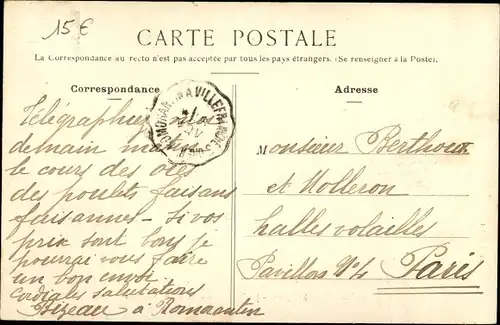 15 €
CARTE POSTALE
La Correspondance au recto n'est pas acceptée par tous les pays étrangers. (Se renseigner à la Poste).
Correspondance
Adresse
ROMORANTIN A VILLEFRANCHE
Télégraphiez
demain matin
le cours des oies
des poulets faisans
faisannes – si vos
prix sont bons je
pourrai vous faire
un bon envoi
Cordiales salutations
Bizeau à Romorantin
Monsieur Berthoux
et Molleron
halles volailles
Pavillon N° 4 Paris